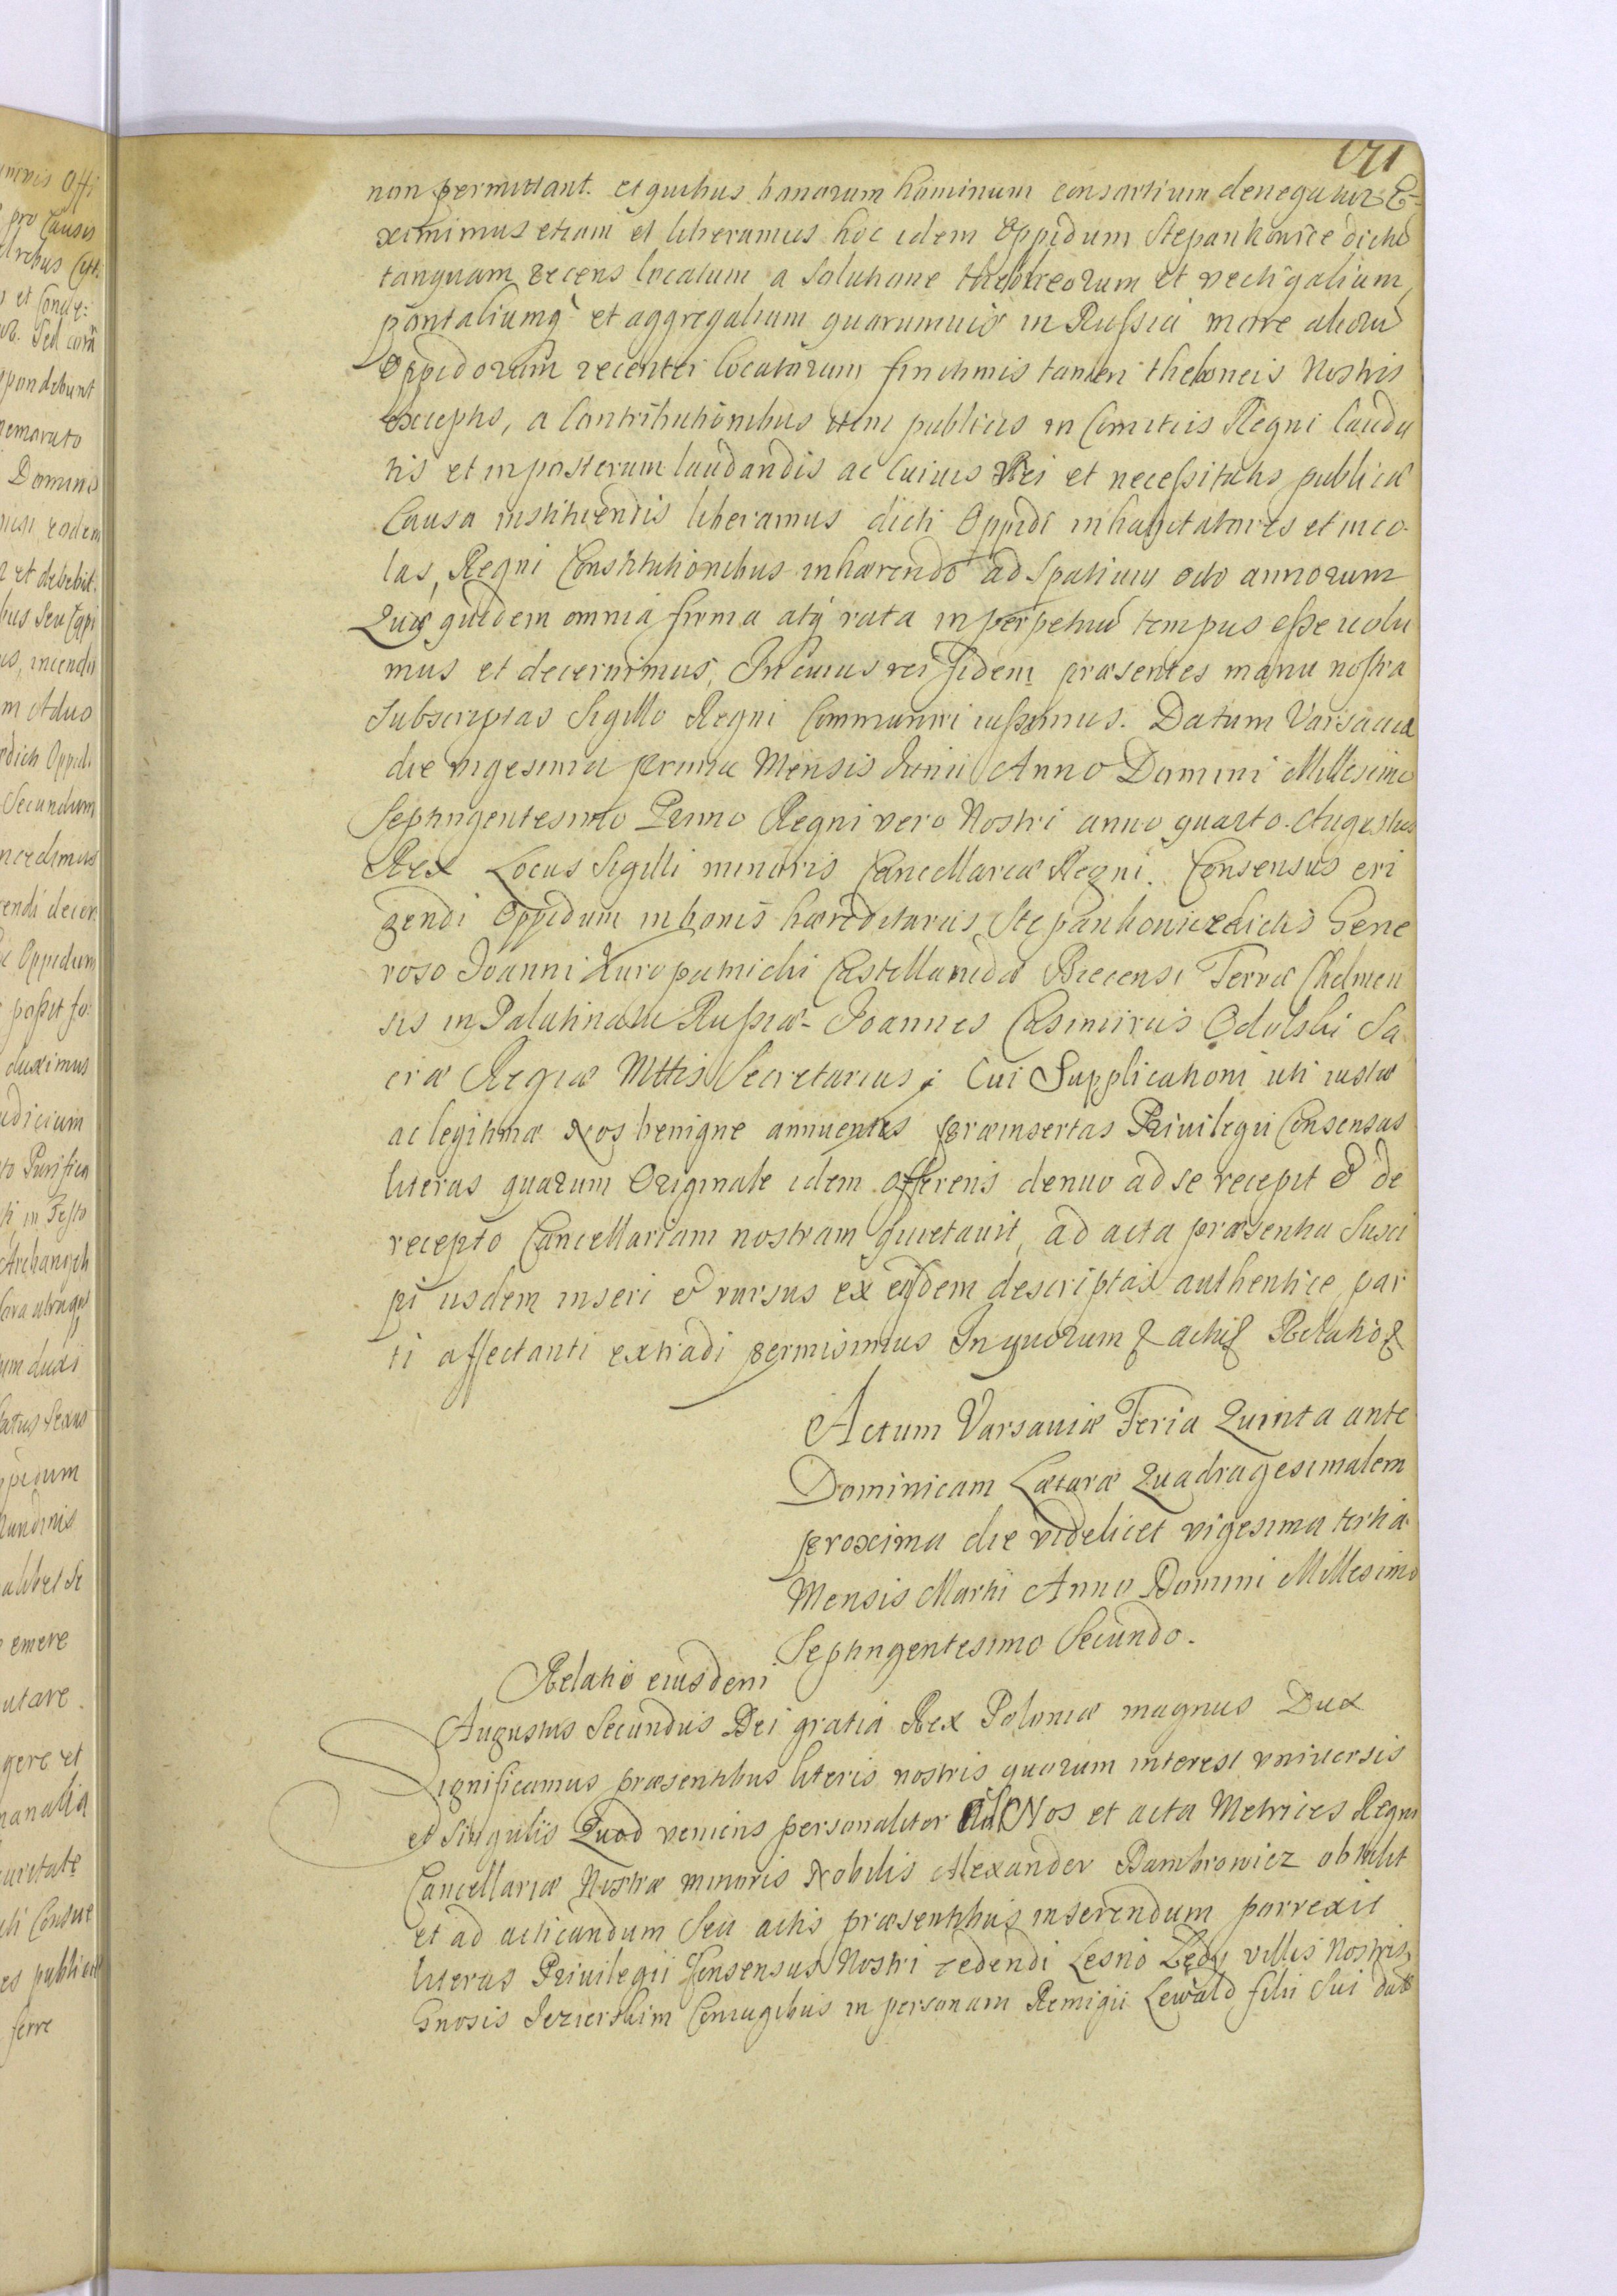 171
non permittant. et quibus bonorum hominum consortium denegatur E-
ximimus etiam et liberamus hoc idem Oppidum Stepankowice dictũ
tanquam recens locatum a Solutione theloneorum et vectigalium,
pontaliumq́ et aggregalium quorumvis in Russia more aliorũ
Oppidorum recenter locatorum finitimis tamen theloneis Nostris
exceptis, a Contributionibus item publicis in Comitiis Regni lauda
tis et inposterum laudandis ac cuiuis Rei et necessitatis publicæ
Causa instituendis liberamus dicti Oppidi inhabitatores et inco-
las, Regni Constitutionibus inhærendo ad Spatium octo annorum
Quæ quidem omnia firma atq́ rata in perpetuũ tempus esse uolu
mus et decernimus, In cuius rei fidem præsentes manu nostra
Subscriptas Sigillo Regni Communiri iussimus. Datum Varsauiæ
die vigesima prima Mensis Junii Anno Domini Millesimo
Septingentesimo Primo Regni vero Nostri anno quarto. Augustus
Rex Locus Sigilli minoris Cancellariæ Regni. Consensus eri
gendi Oppidum in bonis hæreditariis Stepankowice dictis Gene
roso Joanni Kuropatnicki Castellanidæ Biecensi Terræ Chelmen
sis in Palatinatu Russiæ - Joannes Casimirus Odolski Sa
cræ Regiæ Mttis Secretarius; Cui Supplicationi uti iustæ
ac legitimæ Nos benigne annuentes præinsertas Priuilegii Consensus
literas quarum Originale idem offerens denuo ad se recepit & de
recepto Cancellariam nostram quietauit, ad acta præsentia Susci
pi iisdem inseri & rursus ex eisdem descriptas authentice par
ti affectanti extradi permisimus In quorum & actu& Relatio&
Actum Varsauiæ Feria Quinta ante
Dominicam Lætaræ Quadragesimalem
proxima die videlicet vigesima tertia
Mensis Martii Anno Domini Millesimo
Septingentesimo Secundo.
Relatio eiusdem
Augustus Secundus Dei gratia Rex Poloniæ magnus Dux
Significamus præsentibus literis nostris quorum interest vniuersis
et Singulis Quod veniens personaliter Ad Nos et acta Metrices Regni
Cancellariæ Nostræ minoris Nobilis Alexander Dambrowicz obtulit
et ad acticandum Seu actis præsentibus inserendum porrexit
literas Priuilegii Consensus Nostri cedendi Lesno Lędy villis Nostris
Gnosis Jezierskim Coniugibus in personam Remigii Lewald filii Sui